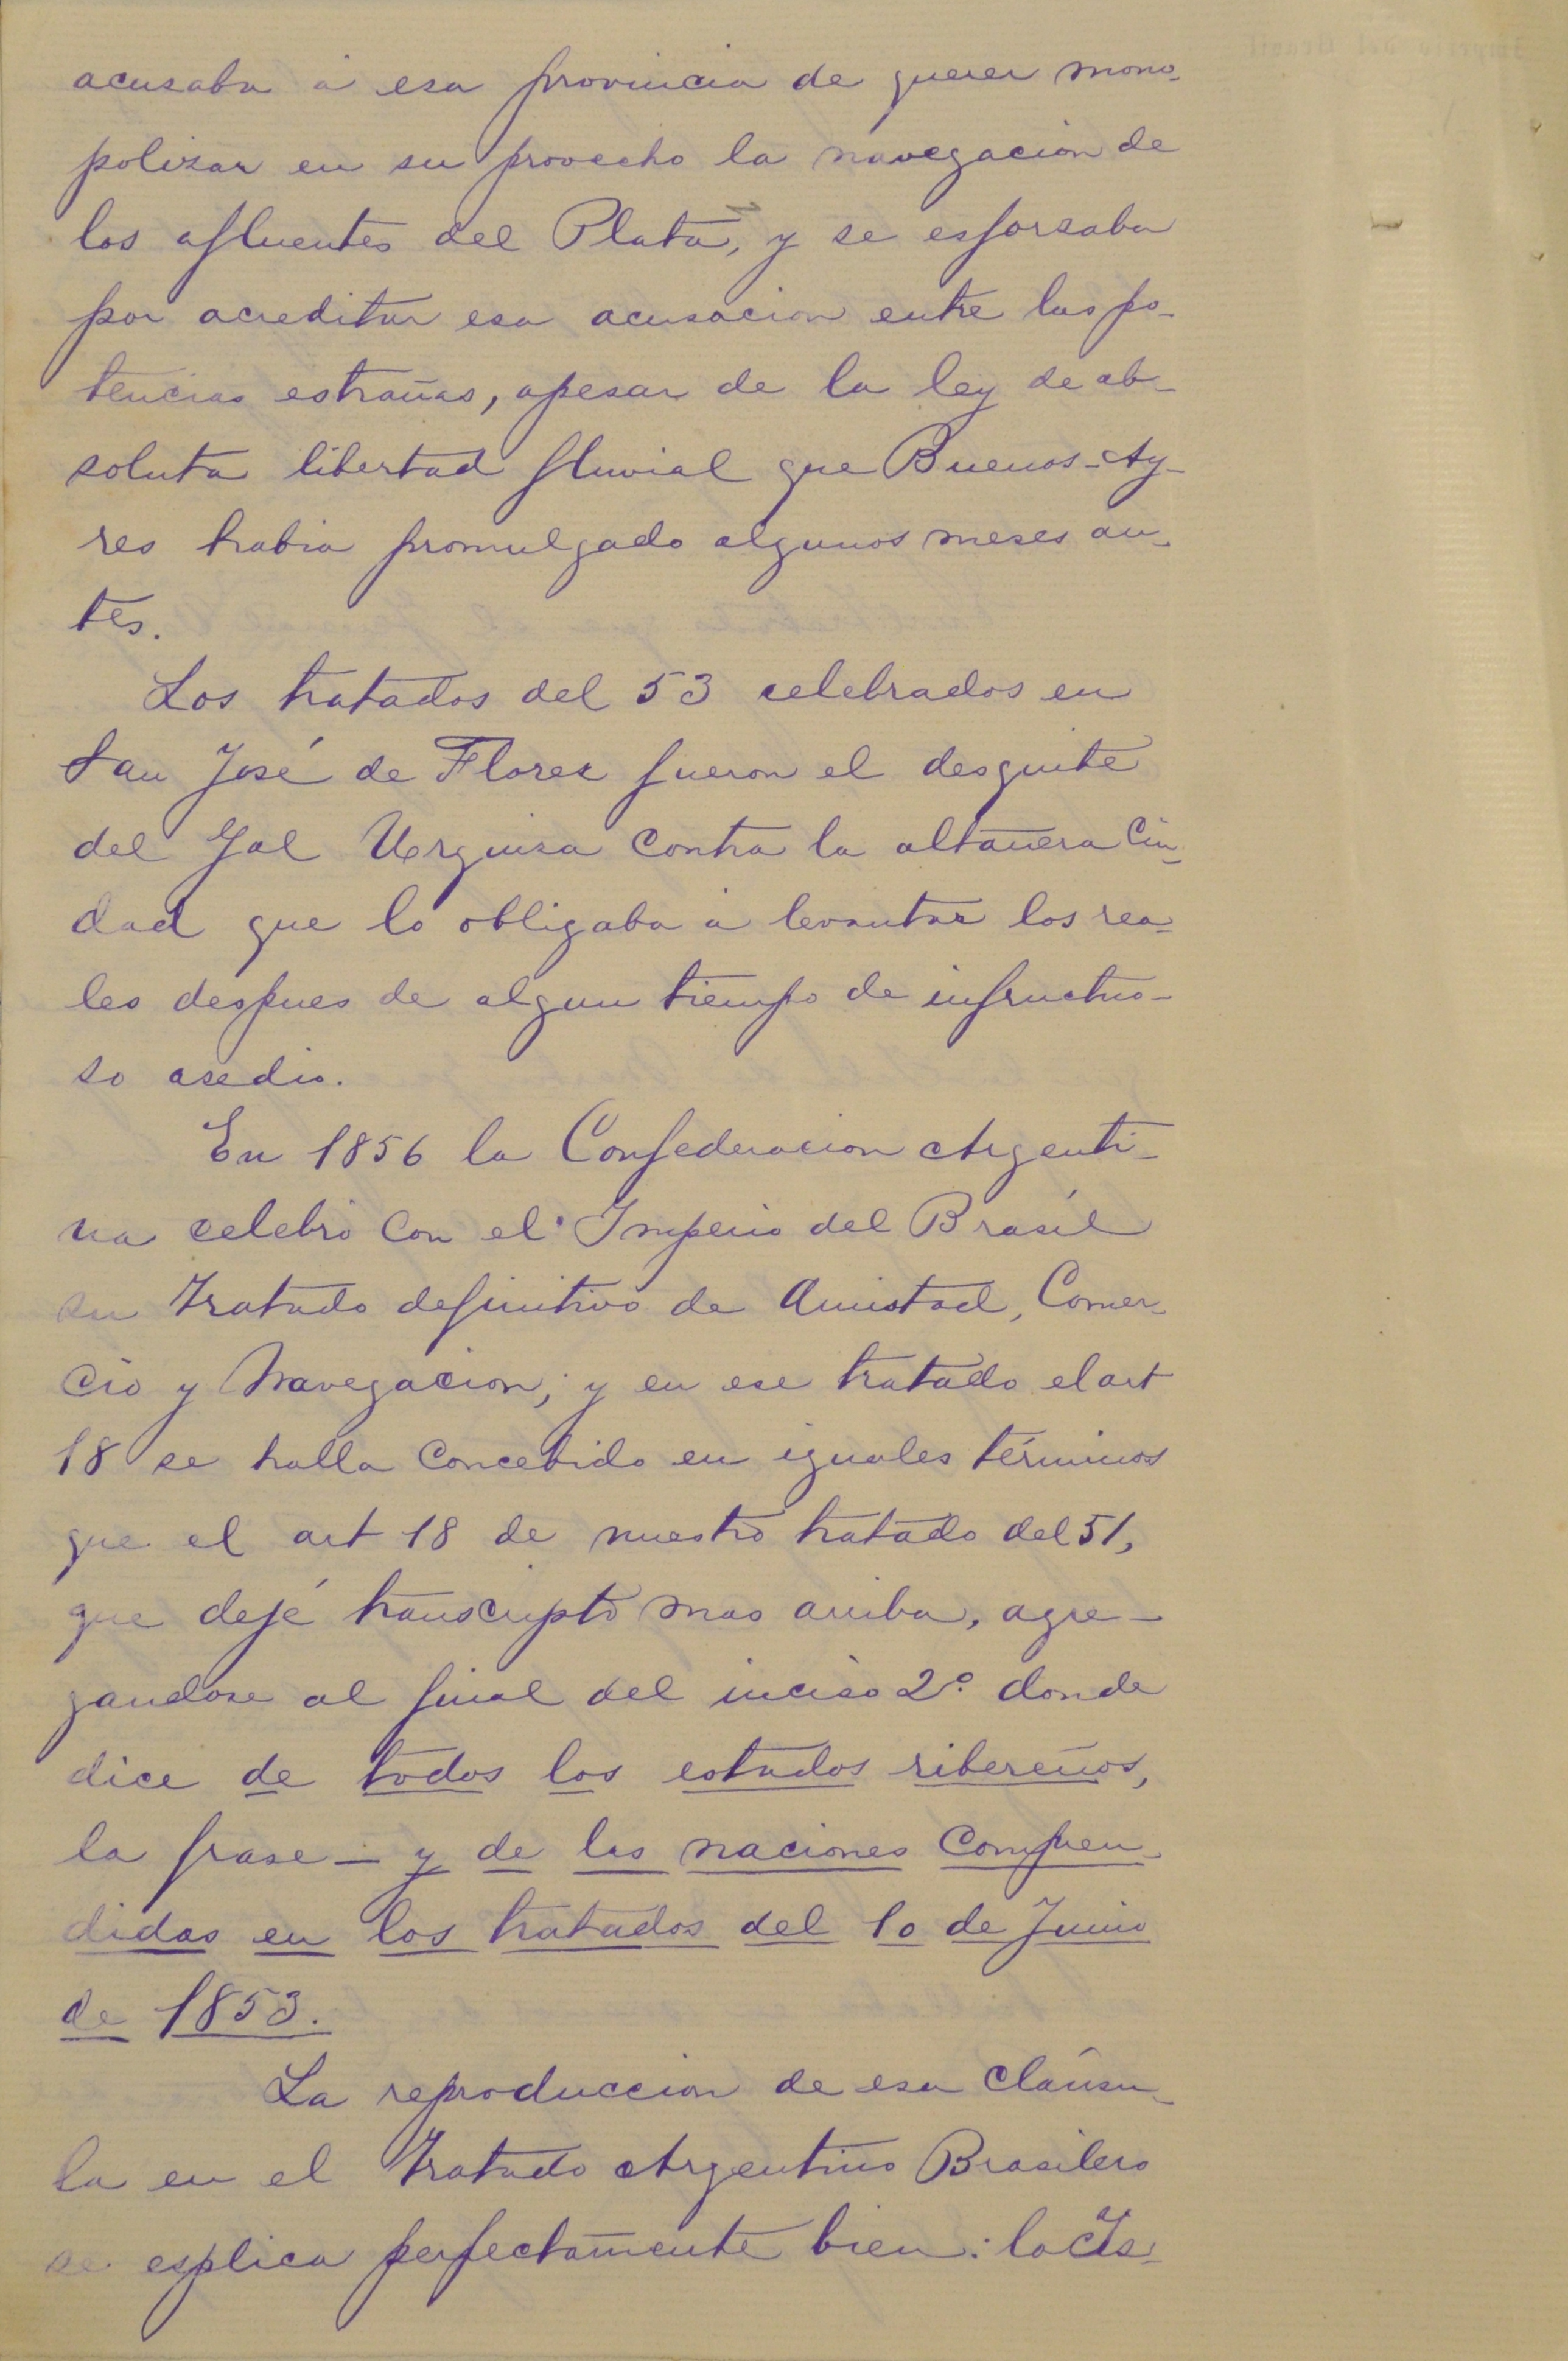 acusaba á esa provincia de querer mono-
polizar en su provecho la navegacion de
los afluentes del Plata, y se esforzaba
por acreditar esa acusacion entre las po-
tencias estrañas, apesar de la ley de ab-
soluta libertad fluvial que Buenos-Ay-
res habia promulgado algunos meses an-
tes.
Los tratados del 53 celebrados en
San José de Flores fueron el desquite
del Gal Urquiza contra la altanera Ciu-
dad que lo obligaba á levantar los rea-
les despues de algun tiempo de infructuo-
so asedio.
En 1856 la Confederacion Argenti-
na celebró con el Imperio del Brasíl
su Tratado definitivo de Amistad, Comer-
cio y Navegacion; y en ese tratado el art
18 se halla concebido en iguales términos
que el art 18 de nuestro tratado del 51,
que dejé transcripto mas arriba, agre-
gandose al final del inciso 2º donde
dice de todos los estados ribereños,
la frase - y de las naciones compren-
didas en los tratados del 10 de Junio
de 1853.
La reproduccion de esa cláusu-
la en el Tratado Argentino Brasilero
se esplica perfectamente bien: la